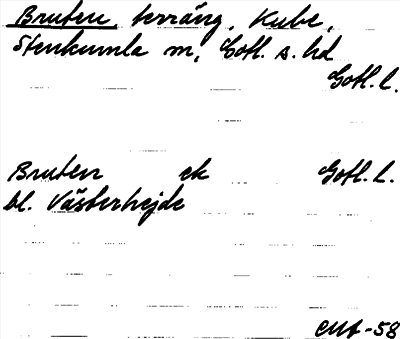 Bruten, terräng, Kube,
Stenkumla sn, Gotl. s. hd
Gotl. l.
Bruten ek Gotl. l.
bl. Västerhejde
-58